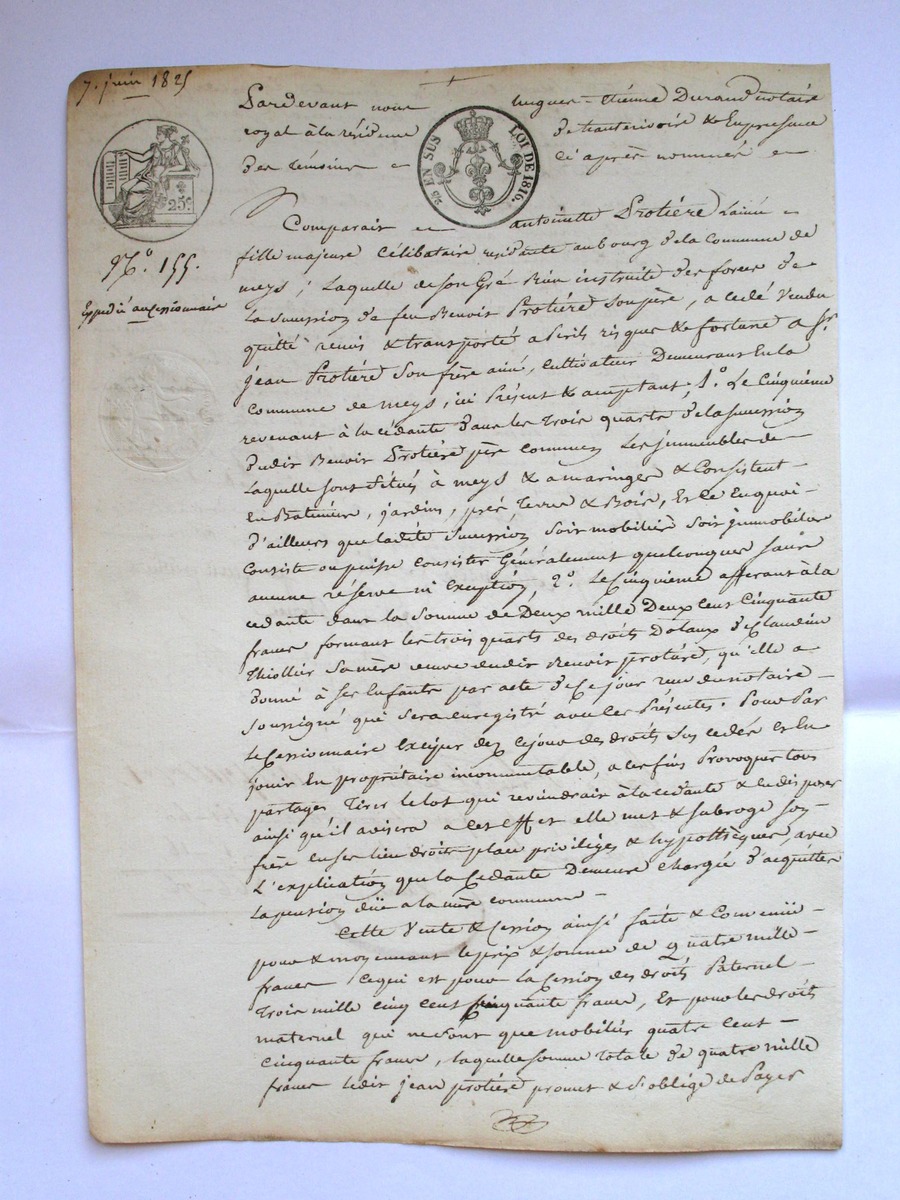 7. juin 1825
Pardevant nous hugues-étienne Durand notaire
royal à la résidence de hauterivoire & En présence
des témoins ci après nommés
25 EN SUS LOI DE 1816.
25c
N.o 155.
Expédié au Cessionnaire
Comparait antoinette Protière L'ainée
fille majeure Célibataire residante au bourg de la Commune de
meys ; Laquelle de son Gré Bien instruite des forces de
La Succession de feu Benoit Protière son père, a cédé Vendu
quitté remis & transporté a Périls risques & fortune a Sr.
jean Protière Son frère ainé, cultivateur Demeurant En la
Commune de meys, ici Présent & acceptant, 1.o Le Cinquième
revenant à la cédante dans les Trois quarts de la succession
dudit Benoit Protière père commun Les immeubles de
Laquelle sont situés à meys & a maringes & Consistent
En Batimens, jardins, prés, Terres & Bois, Et Ce En quoi
d'ailleurs que ladite Succession Soit mobilière Soit immobilière
Consiste ou puisse Consister Généralement quelconques Sans
aucune réserve ni Exception, 2.o Le Cinquième afferant à la
cedante dans la Somme de Deux mille Deux cent Cinquante
francs formant les trois quarts des droits Dotaux de Claudine
Thiollier Sa mère veuve dudit Benoit protière, qu'elle a
donné à Ses Enfants par acte de Ce jour reçu du notaire
Soussigné qui Sera enregistré avec les Présentes. Pour Par
Le Cessionnaire Exciper dez Ce jour des droits Sus cedés Et En
jouir En propriétaire incommutable, a ces fins Provoquer tous
partages Tirer le lot qui reviendrait à la cédante & en disposer
ainsi qu'il avisera a cet Effet elle met & subroge Son
frère En Ses lieu droits place privilèges & hypothèques, avec
L'explication que la Cedante Demeure chargée d'acquitter
La pension düe a la mère commune
Cette Vente & Cession ainsi faite & Convenüe
pour & moyennant le prix & somme de Quatre mille
francs Ce qui est pour la Cession des droits Paternel
Trois mille cinq cent Cinquante francs, Et pour les droits
maternel qui ne sont que mobiliers quatre cent
Cinquante francs, laquelle Somme Totale de quatre mille
francs ledit jean protière promet & S'oblige de Payer